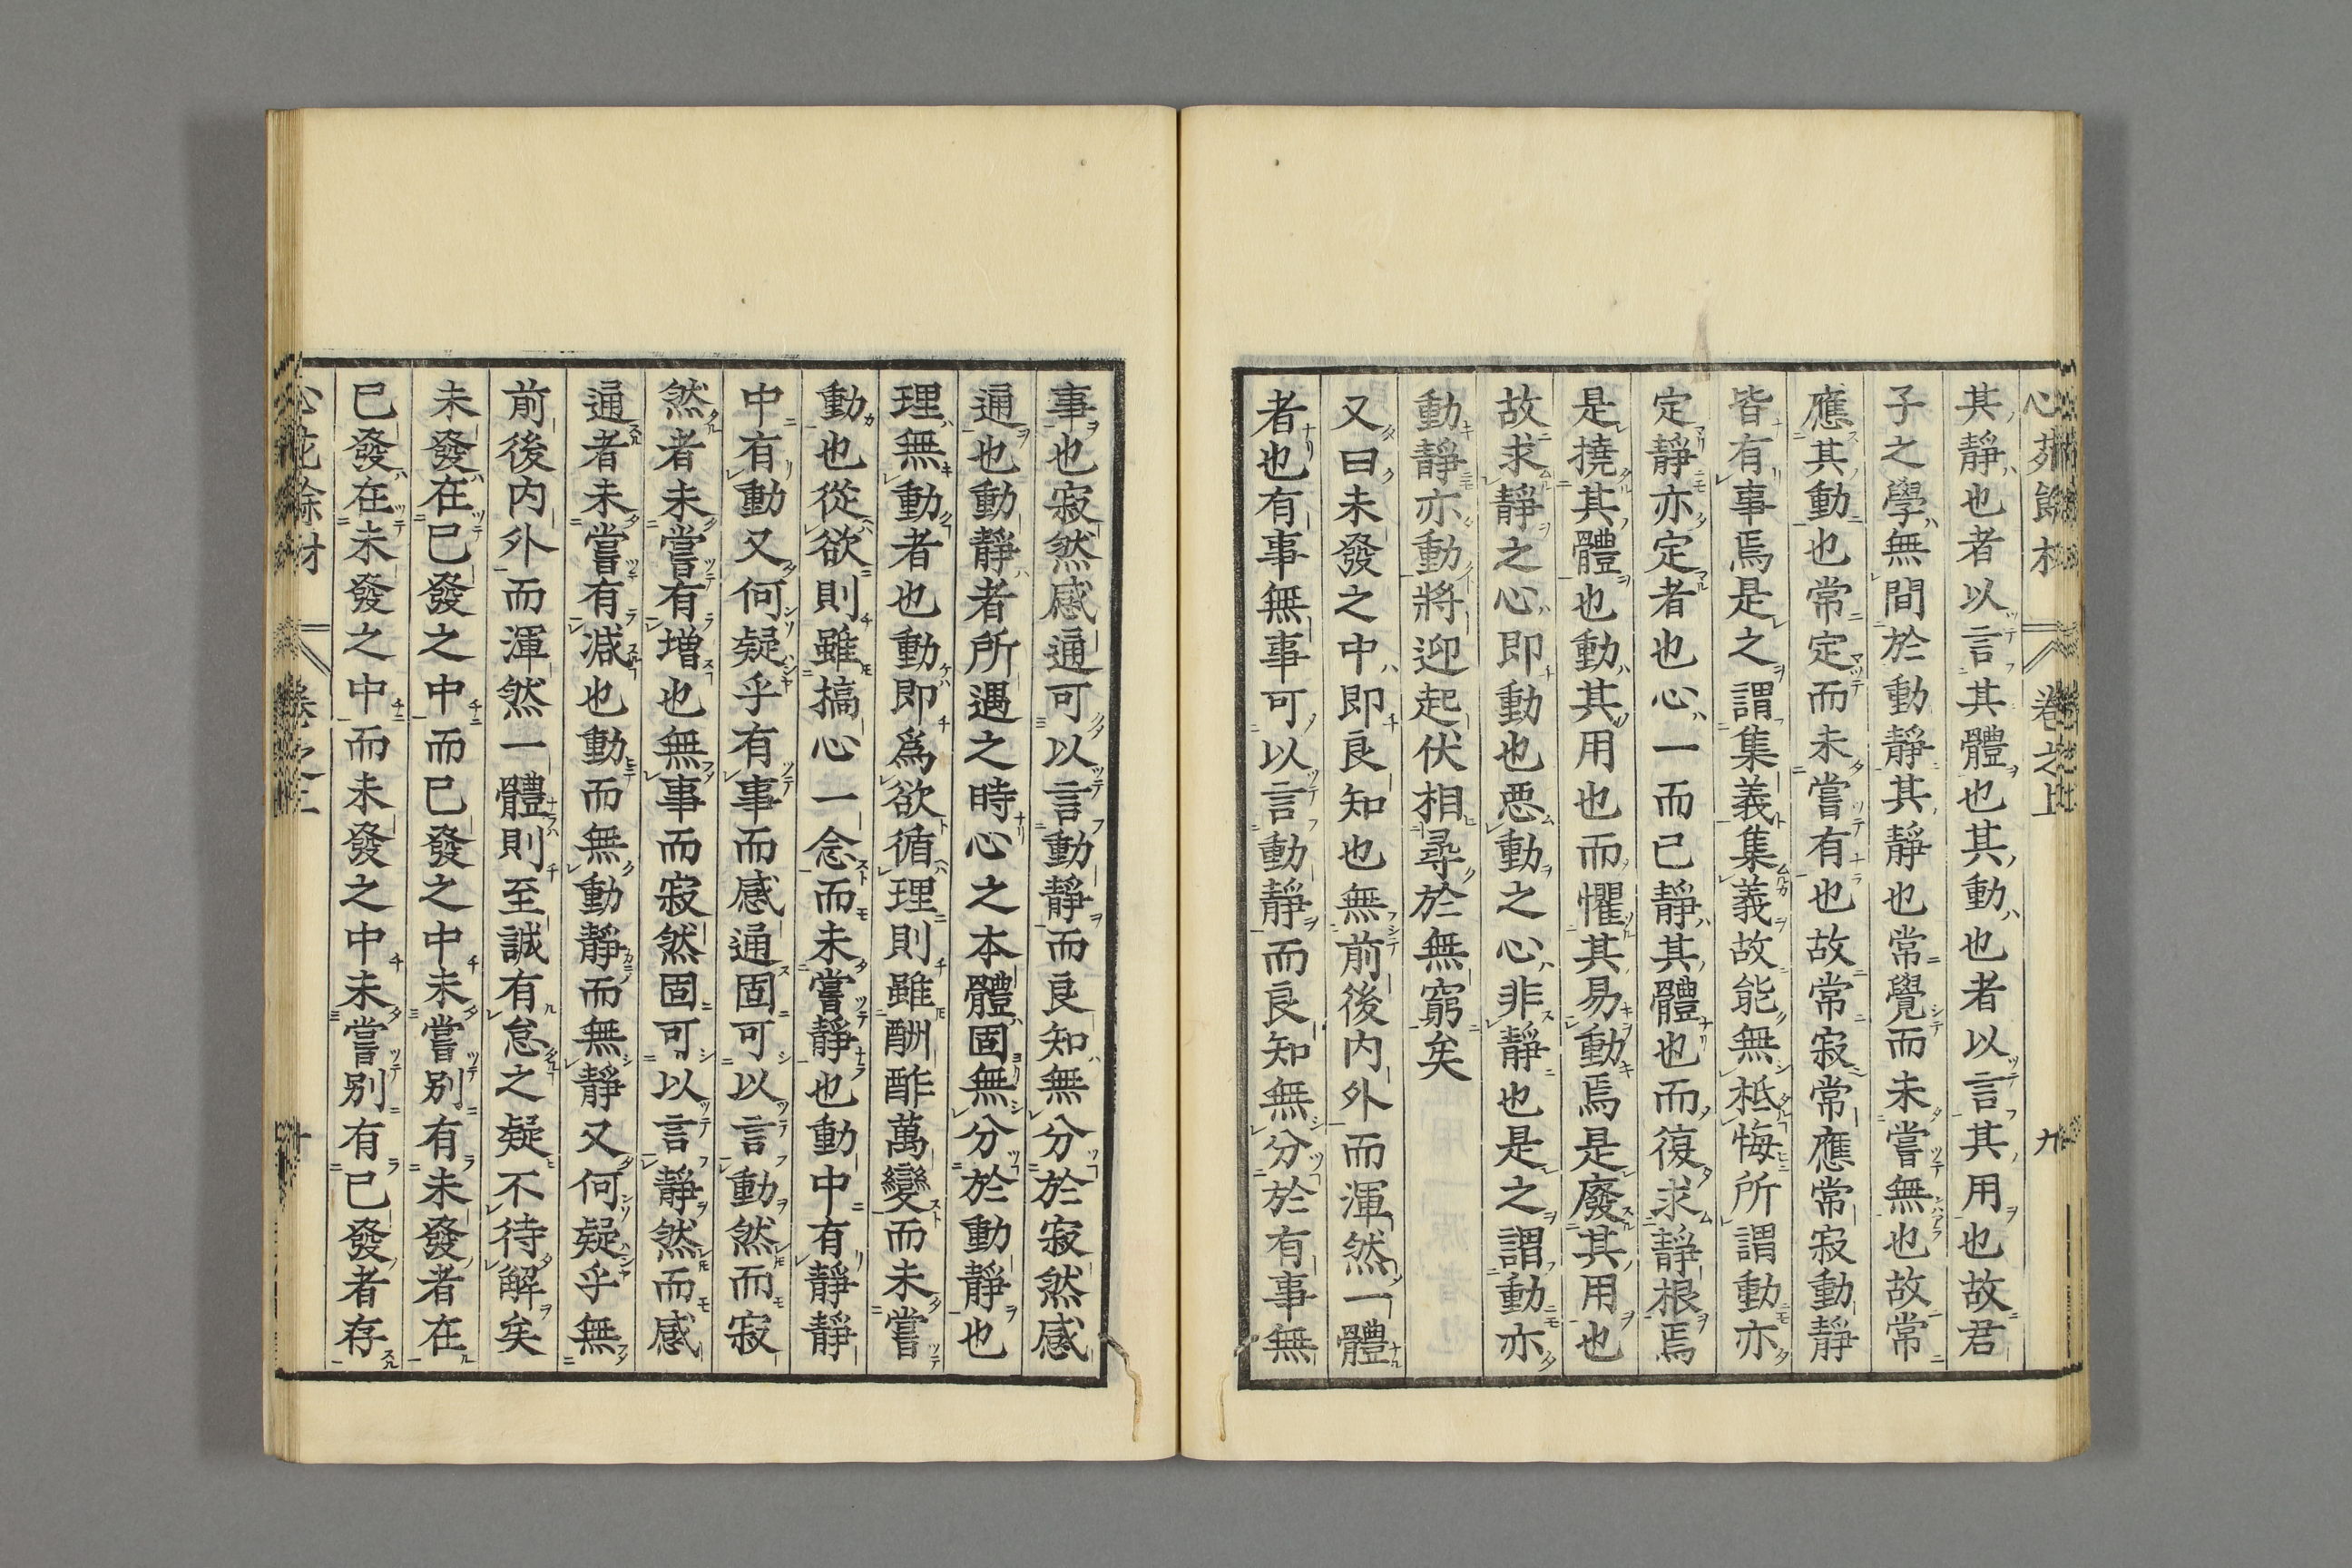 心苑餘材 卷之上 九
其靜也者以言其體也其動也者以言其用也故君
子之學無間於動靜其靜也常覺而未嘗無也故常
應其動也常定而未嘗有也故常寂常應常寂動靜
皆有事焉是之謂集義集義故能無柢悔所謂動亦
定靜亦定者也心一而已靜其體也而復求靜根焉
是撓其體也動其用也而懼其易動焉是廢其用也
故求靜之心即動也惡動之心非靜也是之謂動亦
動靜亦動將迎起伏相尋於無窮矣
又曰未發之中即良知也無前後内外而渾然一體
者也有事無事可以言動靜而良知無分於有事無
事也寂然感通可以言動靜而良知無分於寂然感
通也動靜者所遇之時心之本體固無分於動靜也
理無動者也動即爲欲循理則雖酬酢萬變而未嘗
動也從欲則雖搞心一念而未嘗靜也動中有靜靜
中有動又何疑乎有事而感通固可以言動然而寂
然者未嘗有增也無事而寂然固可以言靜然而感
通者未嘗有減也動而無動靜而無靜又何疑乎無
前後内外而渾然一體則至誠有怠之疑不待解矣
未發在已發之中而已發之中未嘗别有未發者在
已發在未發之中而未發之中未嘗别有已發者存
餘材 卷之上 十